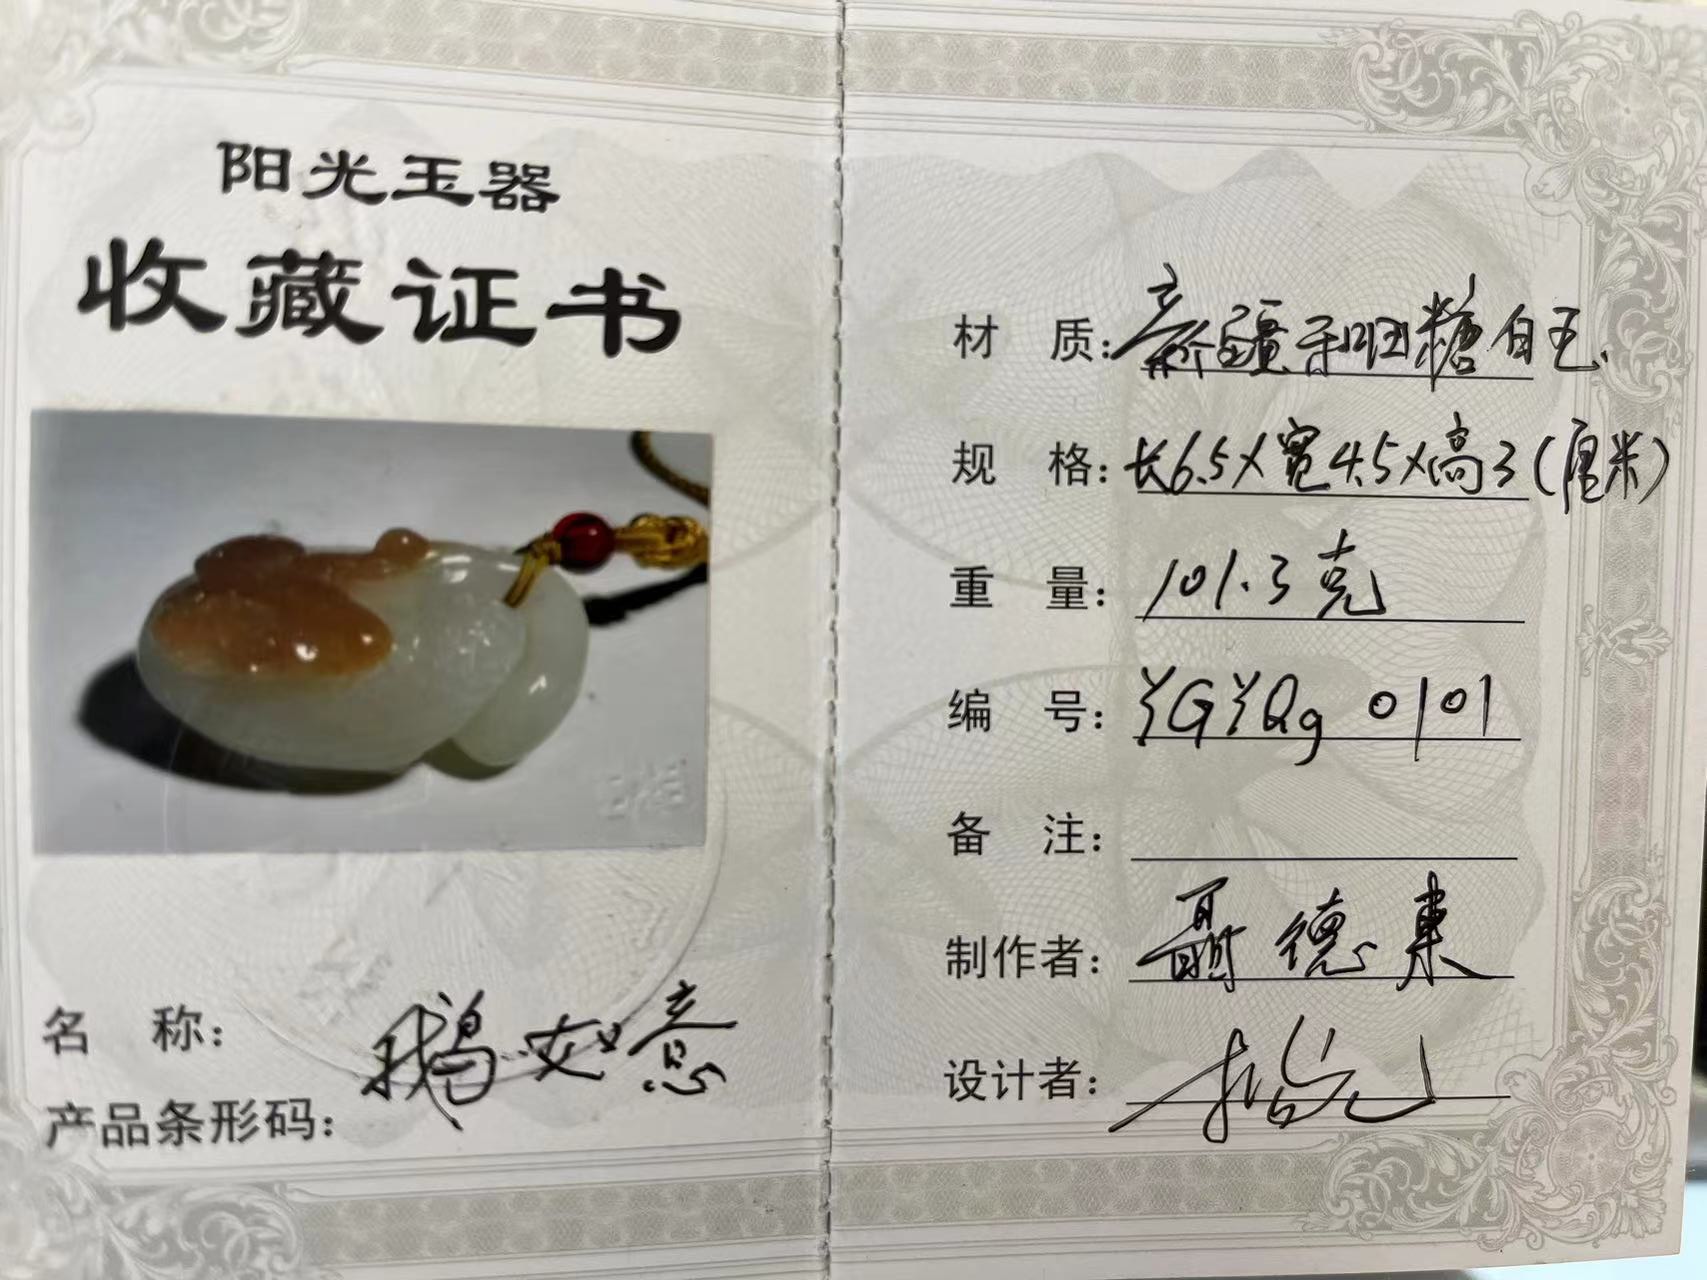 阳光玉器
收藏证书
名 称：鹅如意
产品条形码：
材 质：新疆和田糖白玉
规 格：长6.5×宽4.5×高3（厘米）
重 量：101.3克
编 号：YGYQg 0101
备 注：
制作者：聶德東
设计者：